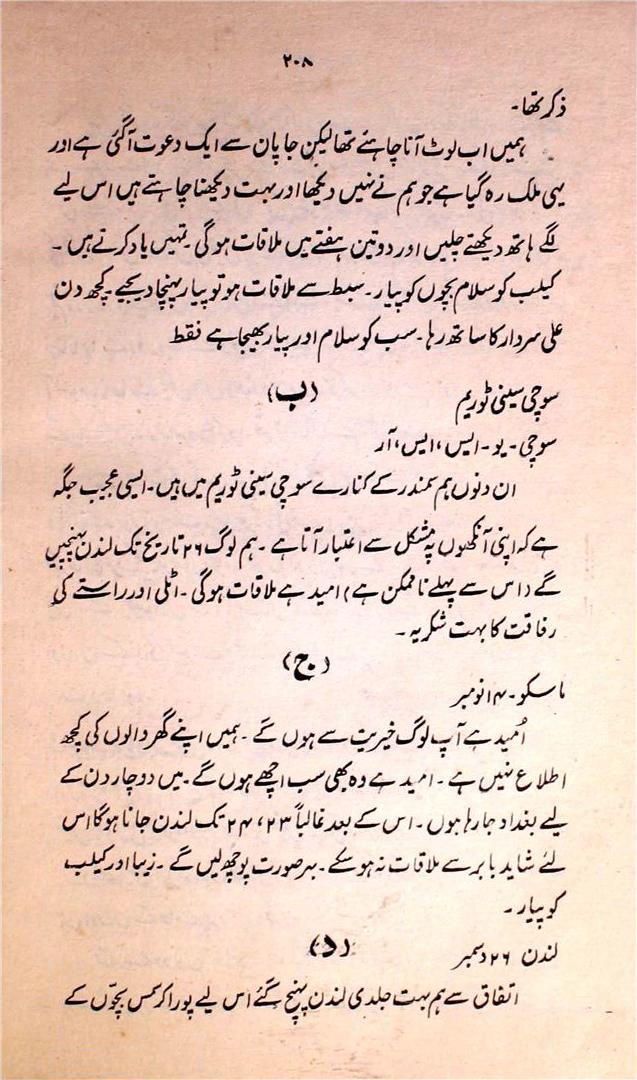 ۲۰۸
ذکر تھا۔
ہمیں اب لوٹ آنا چاہئے تھا لیکن جاپان سے ایک دعوت آ گئی ہے اور
یہی ملک رہ گیا ہے جو ہم نے نہیں دیکھا اور بہت دیکھنا چاہتے ہیں اس لیے
لگے ہاتھ دیکھتے چلیں اور دو تین ہفتے میں ملاقات ہو گی۔ تمہیں یاد کرتے ہیں۔
کیلب کو سلام بچوں کو پیار۔ سبط سے ملاقات ہو تو پیار پہنچا دیجیے۔ کچھ دن
علی سردار کا ساتھ رہا۔ سب کو سلام اور پیار بھیجا ہے فقط
(ب)
سوچی سینی ٹوریم
سوچی۔ یو۔ ایس، ایس، آر
ان دنوں ہم سمندر کے کنارے سوچی سینی ٹوریم میں ہیں۔ ایسی عجب جگہ
ہے کہ اپنی آنکھوں پہ مشکل سے اعتبار آتا ہے۔ ہم لوگ ۲۶ تاریخ تک لندن پہنچیں
گے (اس سے پہلے ناممکن ہے) امید ہے ملاقات ہو گی۔ اٹلی اور راستے کی
رفاقت کا بہت شکریہ۔
(ج)
ماسکو۔ ۱۴ نومبر
اُمید ہے آپ لوگ خیریت سے ہوں گے۔ ہمیں اپنے گھر والوں کی کچھ
اطلاع نہیں ہے۔ امید ہے وہ بھی سب اچھے ہوں گے۔ میں دو چار دن کے
لیے بغداد جا رہا ہوں۔ اس کے بعد غالباً ۲۳، ۲۴ تک لندن جانا ہو گا اس
لئے شاید بابر سے ملاقات نہ ہو سکے۔ بہر صورت پوچھ لیں گے۔ زیبا اور کیلب
کو پیار۔
(د)
لندن ۲۶ دسمبر
اتفاق سے ہم بہت جلدی لندن پہنچ گئے اس لیے پورا کرسمس بچّوں کے